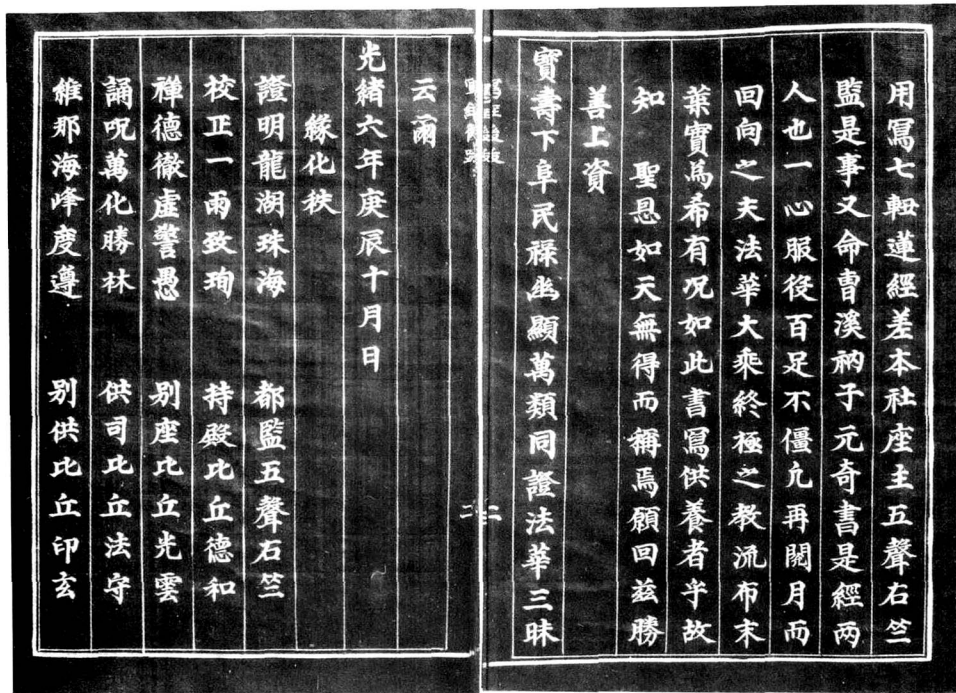 用寫七軸蓮經差本社座主五聲右竺
監是事又命曺溪衲子元奇書是經两
人也一心服役百足不僵凢再閱月而
回向之夫法華大乘終極之教流布末
葉實爲希有况如此書寫供養者乎故
知 聖恩如天無得而稱焉願回玆勝
善上資
寶壽下阜民祿幽顯萬類同證法華三昧
云爾
光緖六年庚辰十月日
緣化秩
證明龍湖珠海 都監五聲右竺
校正一雨致珣 持殿比丘德和
禪德徹虛警愚 別座比丘光雲
誦呪萬化勝林 供司比丘法守
維那海峰㡳遵 別供比丘印玄